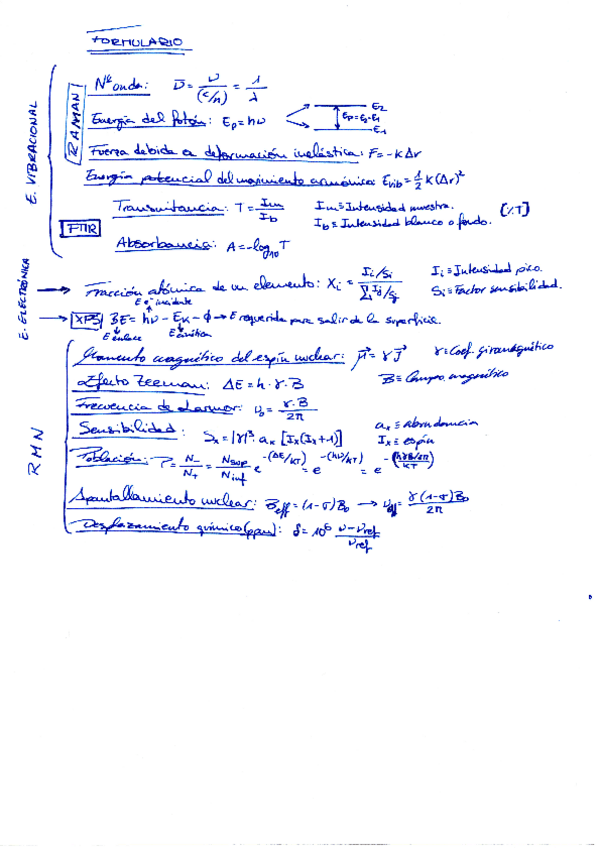 FORMULARIO
E. VIBRACIONAL
RAMAN
Nº onda: ν̄ = ν/(c/n) = 1/λ
Energía del fotón: Ep = hν
E2
Ep=E2-E1
E1
Fuerza debida a deformación inelástica: F = -KΔr
Energía potencial del movimiento armónico: Evib = 1/2 K(Δr)²
FTIR
Transmitancia: T = Im/Ib
Im ≡ Intensidad muestra. [%T]
Ib ≡ Intensidad blanco o fondo.
Absorbancia: A = -log10 T
E. ELECTRÓNICA
Fracción atómica de un elemento: Xi = (Ii/Si)/(Σ Ij/Sj)
Ii ≡ Intensidad pico.
Si ≡ Factor sensibilidad.
E e⁻ incidente
XPS BE = hν - EK - Φ → E requerida para salir de la superficie.
E enlace E cinética
RMN
Momento magnético del espín nuclear: μ⃗ = γ J⃗ γ ≡ Coef. giromagnético
Efecto Zeeman: ΔE = h·γ·B B ≡ Campo magnético
Frecuencia de Larmor: ν0 = γ·B/2π
Sensibilidad: Sx = |γ|³· ax [Ix(Ix+1)]
ax ≡ abundancia
Ix ≡ espín
Población: P = N-/N+ = Nsup/Ninf e^-(ΔE/KT) = e^-(hν/KT) = e^-(hγB/2π/KT)
Apantallamiento nuclear: Beff = (1-σ)B0 → νeff = γ(1-σ)B0/2π
Desplazamiento químico (ppm): δ = 10⁶ (ν-νref)/νref